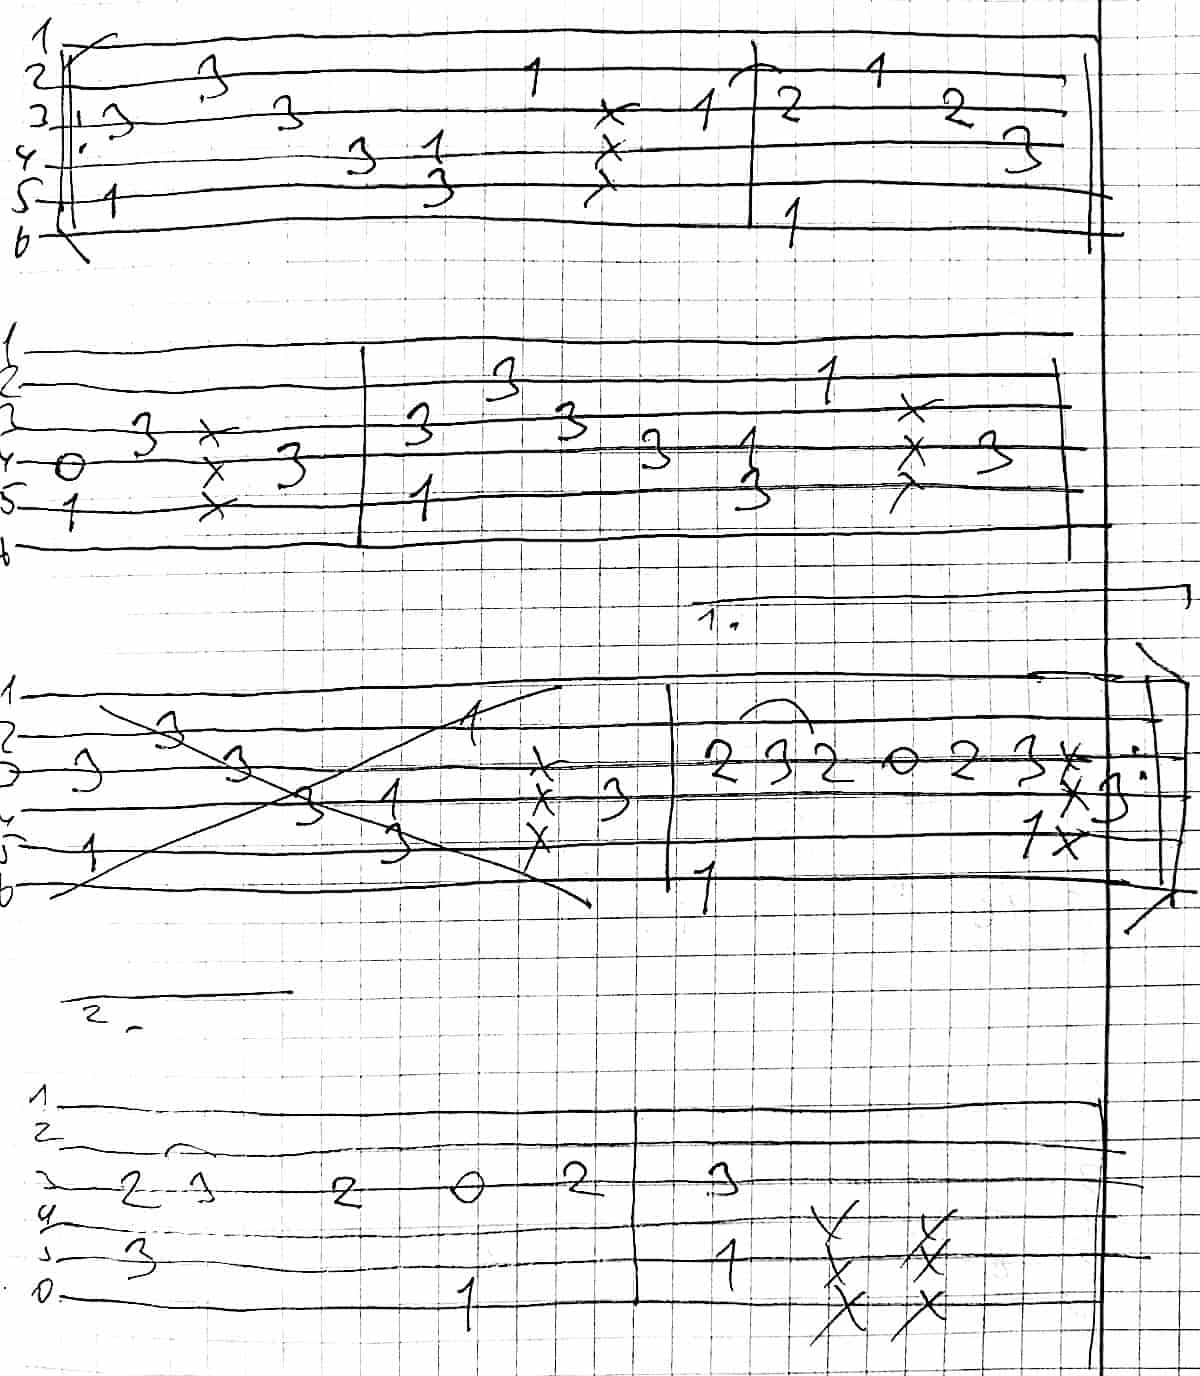 1
2 3 1 1
3 3 3 X 1 2 2
4 3 1 X 3
5 1 3 X
6 1
1
2 3 1
3 3 X 3 3 X
4 0 X 3 3 1 X 3
5 1 X 1 3 X
6
1.
1
2 3 1
3 3 3 X 2 3 2 0 2 3 X
4 3 1 X 3 X 3
5 1 3 X 1 X
6 1
2.
1
2
3 2 3 2 0 2 3
4 X X
5 3 1 X X
1 X X